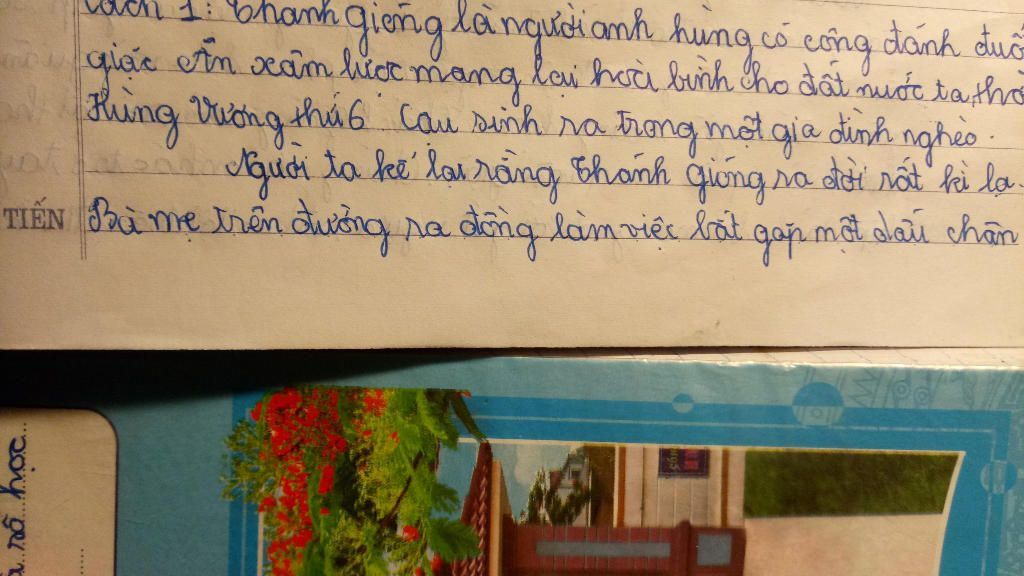 cách 1: Thánh gióng là người anh hùng có công đánh đuổ
giặc Ân xâm lược mang lại hoà bình cho đất nước ta, thờ
Hùng Vương thứ 6. Cậu sinh ra trong một gia đình nghèo.
Người ta kể lại rằng Thánh gióng ra đời rất kì lạ.
TIẾN Bà mẹ trên đường ra đồng làm việc bắt gặp một dấu chân
rô học